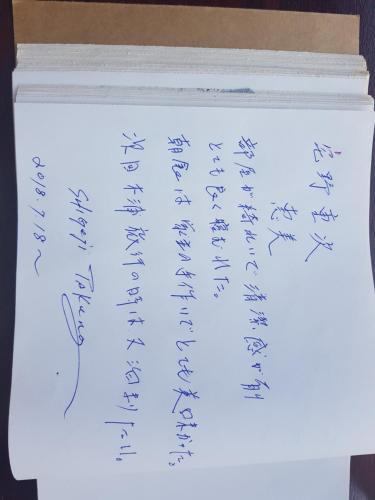 宅野 重次
恵美
部屋が綺れいで清潔感が有り
とても良く寝むれた。
朝食は の手作りでとても美味かった。
次回木浦旅行の時は又泊りたい。
SHIGEJI TAKUNO
2018.7.18〜